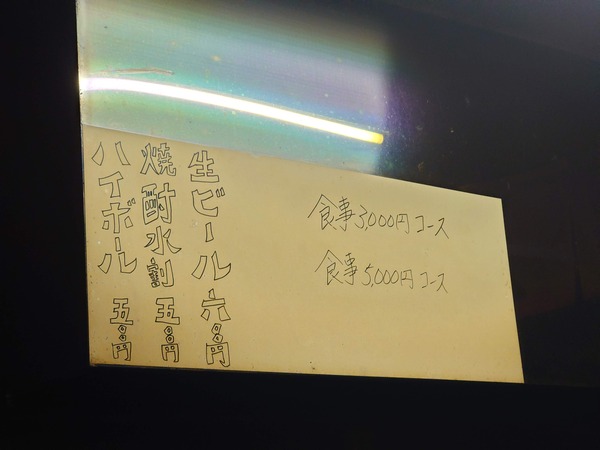 生ビール 六〇〇円
焼酎水割 五〇〇円
ハイボール 五〇〇円
食事3,000円コース
食事5,000円コース